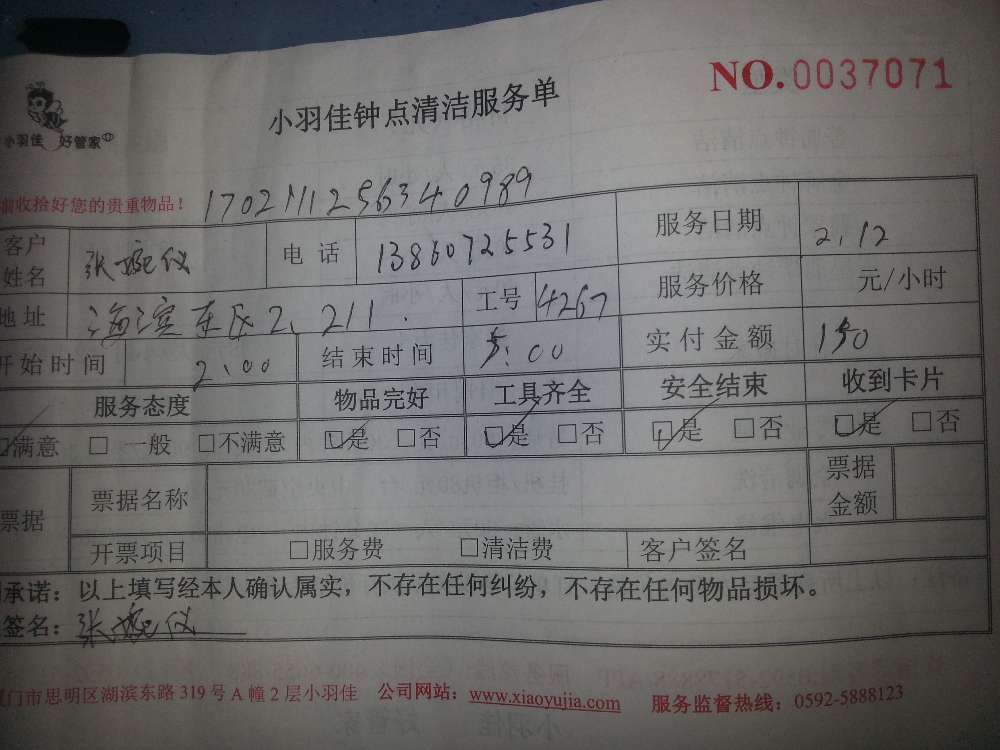 NO.0037071
小羽佳 好管家
小羽佳钟点清洁服务单
收拾好您的贵重物品！ 17021112563340989
客户姓名 张婉仪 电话 13860725531 服务日期 2.12
地址 海滨东区2、211. 工号 4267 服务价格 元/小时
开始时间 2:00 结束时间 5:00 实付金额 150
服务态度 物品完好 工具齐全 安全结束 收到卡片
☑满意 □一般 □不满意 ☑是 □否 ☑是 □否 ☑是 □否 ☑是 □否
票据 票据名称 票据金额
开票项目 □服务费 □清洁费 客户签名
承诺：以上填写经本人确认属实，不存在任何纠纷，不存在任何物品损坏。
签名：张婉仪
门市思明区湖滨东路319号A幢2层小羽佳 公司网站：www.xiaoyujia.com 服务监督热线：0592-5888123